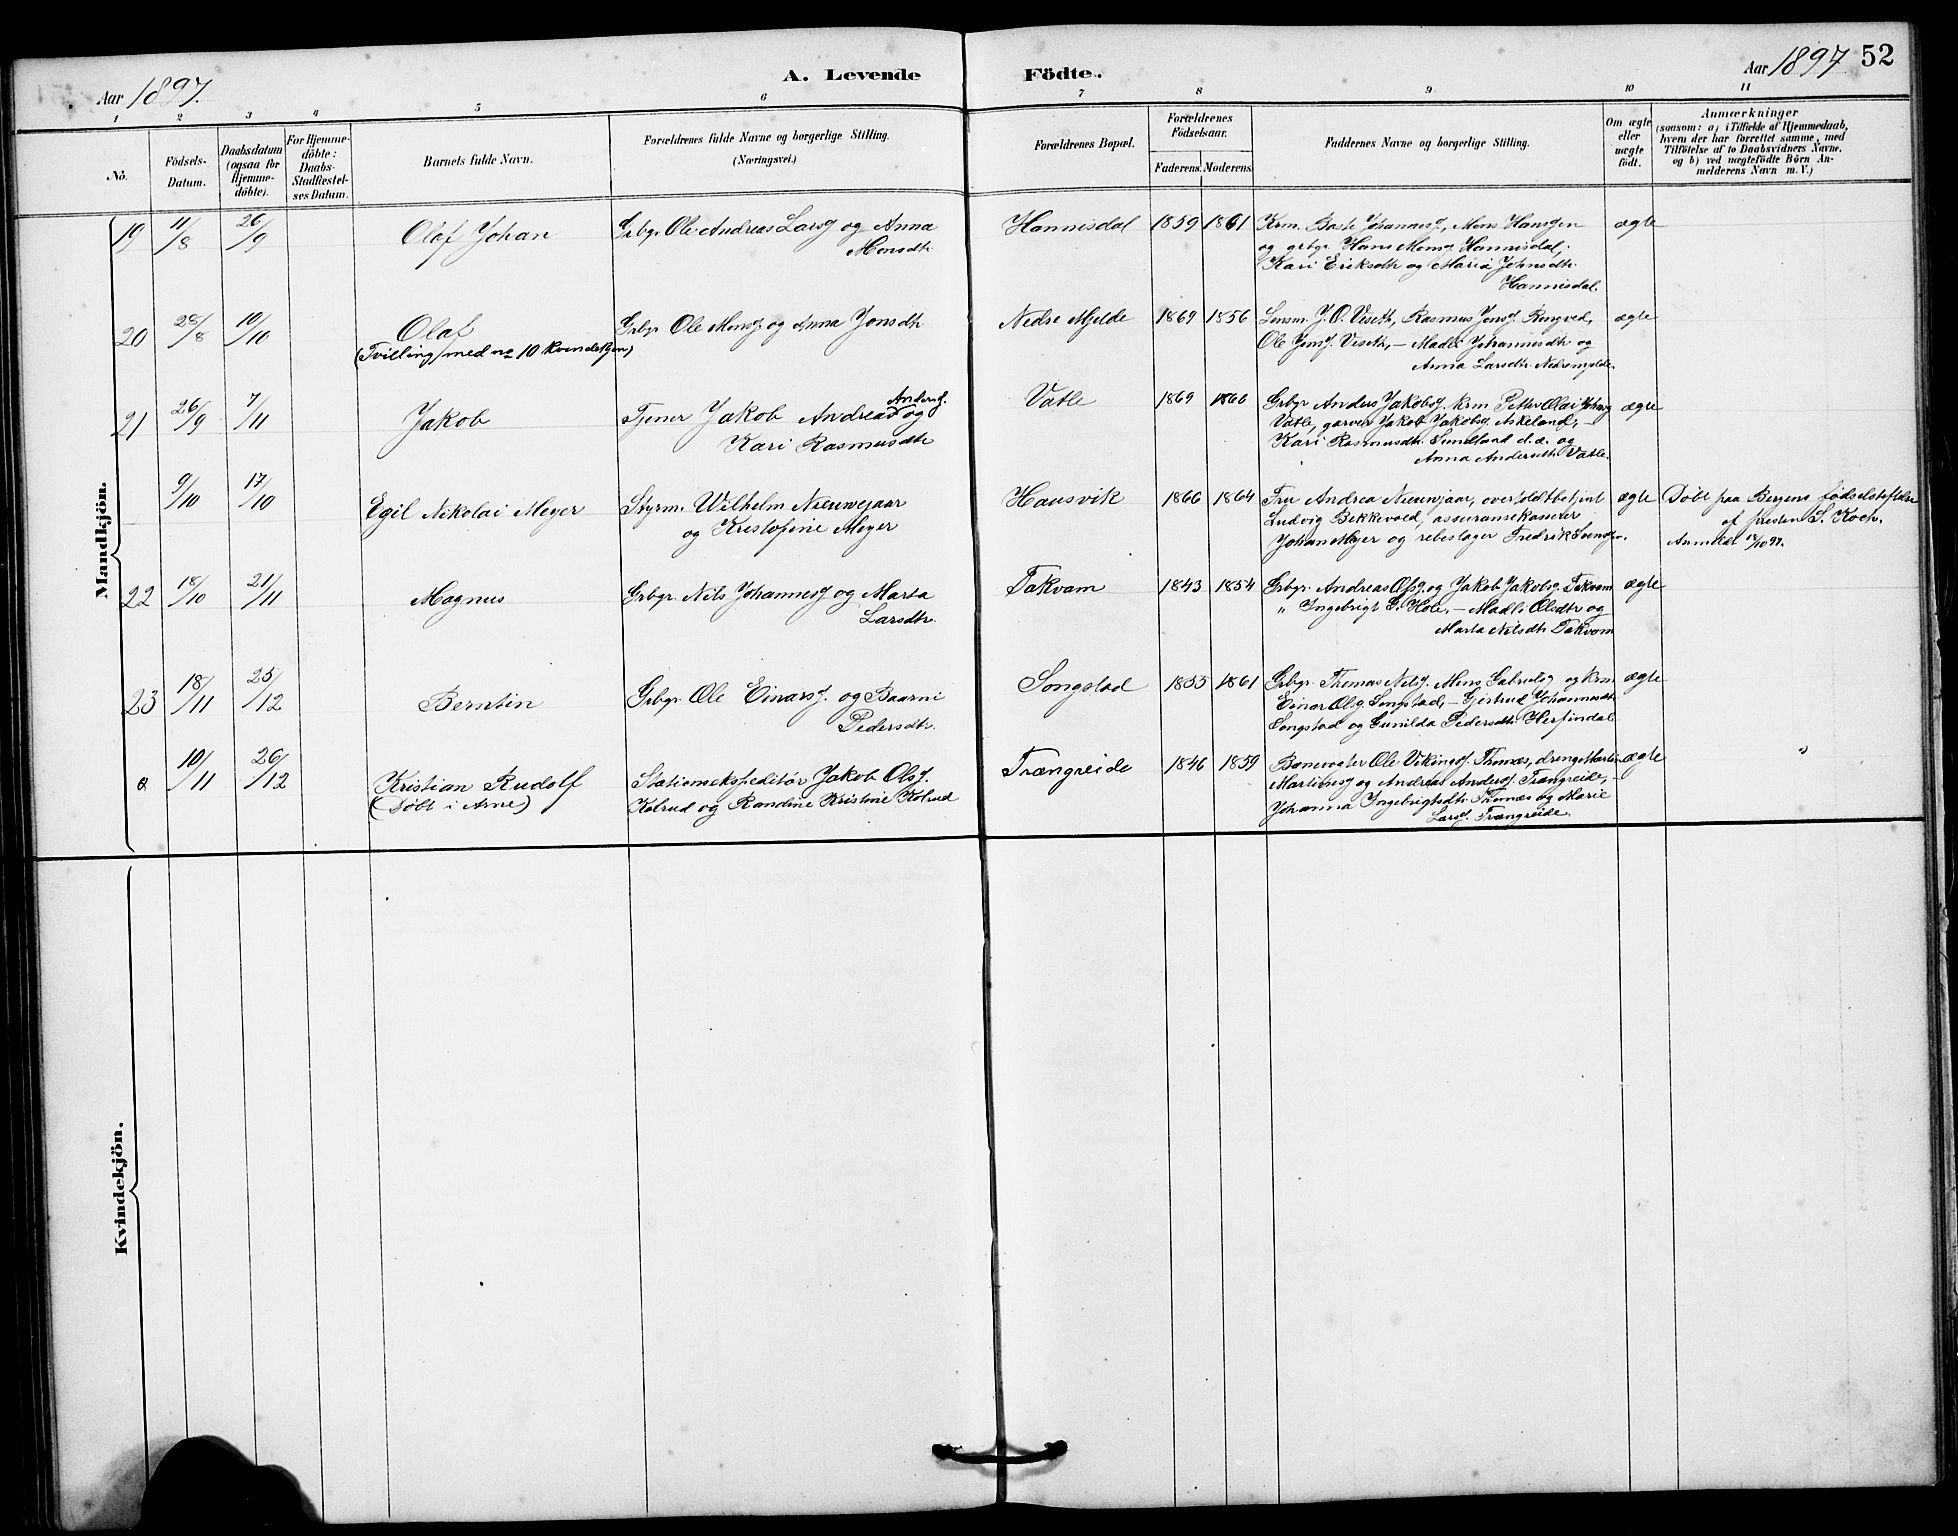 Aar 1897.
A. Levende Födte.
Aar 1897 52
1 2 3 4 5 6 7 8 9 10 11
No.
Födsels-
Datum.
Daabsdatum
(ogsaa for
Hjemme-
döbte).
For Hjemme-
döbte:
Daabs-
Stadfæstel-
ses Datum.
Barnets fulde Navn.
Forældrenes fulde Navne og borgerlige Stilling.
(Næringsvei.)
Forældrenes Bopæl.
Forældrenes
Födselsaar.
Faderens. Moderens.
Faddernes Navne og borgerlige Stilling.
Om ægte
eller
uægte
født.
Anmærkninger
(saasom: a) i Tilfælde af Hjemmedaab,
hvem der har forrettet samme, med
Tilföielse af to Daabsvidners Navne,
og b) ved uægtefödte Börn An-
melderens Navn m. V.)
Mandkjön.
19 11/8 26/9 Olaf Johan
Grbgr. Ole Andreas Larsg og Anna
Monsdtr.
Hannisdal 1859 1861
Krm. Baste Johannesg, Mons Hansgen
og grbgr. Hans Monsg Hannisdal,
Kari Eriksdtr og Maria Johnsdtr.
Hannisdal.
ægte
20 28/8 10/10 Olaf
(Tvilling med no 10 kvindekjøn)
Grbgr Ole Monsg og Anna Jonsdtr
Nedre Mjelde 1869 1856
Lensm. J. O. Viseth, Rasmus Jensg.
Ole Jensg. Viseth, – Madli Johannesdtr og
Anna Larsdtr. Nedremjelde.
ægte
21 26/9 7/11 Jakob
Tjener Jakob Andreas Andersg. og
Kari Rasmusdtr
Vatle 1869 1866
Grbgr Anders Jakobsg. krm Petter Olai Johansg
Vatle, garver Jakob Jakobsg. Askeland, –
Kari Rasmusdtr. Sundland d.æ. og
Anna Andersdtr. Vatle.
ægte
9/10 17/10 Egil Nikolai Meyer
Styrm. Wilhelm Nieuwejaar
og Kristofine Meyer
Hausvik 1866 1864
Fru Andrea Nieuwejaar, overtoldbetjent
Ludvig Bekkevold, assuransekaserer
Johan Meyer og rebslager Fredrik
ægte
Døbt paa Bergens fødselsstiftelse
af presten S. Koch.
Anmeldt 18/10 97.
22 18/10 21/11 Magnus
Grbgr. Nils Johannesg og Marta
Larsdtr.
Takvam 1843 1854
Grbgr. Andreas Olsg. og Jakob Jakobsg. Takvam
" Ingebrigt G. Hole, – Madli Olsdtr og
Marta Nilsdtr. Takvam
ægte
23 18/11 25/12 Berntin
Grbgr. Ole Einarsg. og Baarni
Pedersdtr.
Songstad 1855 1861
Grbgr. Thomas Nilsg. Mons Gabrielsg og krm
Einar Olsg. Songstad, – Gjertrud Johannesdtr
Songstad og Gunilda Pedersdtr. Herfindal
ægte
a 10/11 26/12 Kristian Rudolf
(Døbt i Arne)
Stationsekspeditør Jakob Olsg.
Kolrud og Randine Kristine Kolrud
Trængreide 1846 1859
Banevogter Ole Vikingsg. Thomæs, dreng Martin
Martinusg og Andreas Andersg. Trængreide, –
Johanna Ingebrigtsdtr. Thomæs og Marie
Larsg. Trængreide.
ægte "
Kvindekjön.